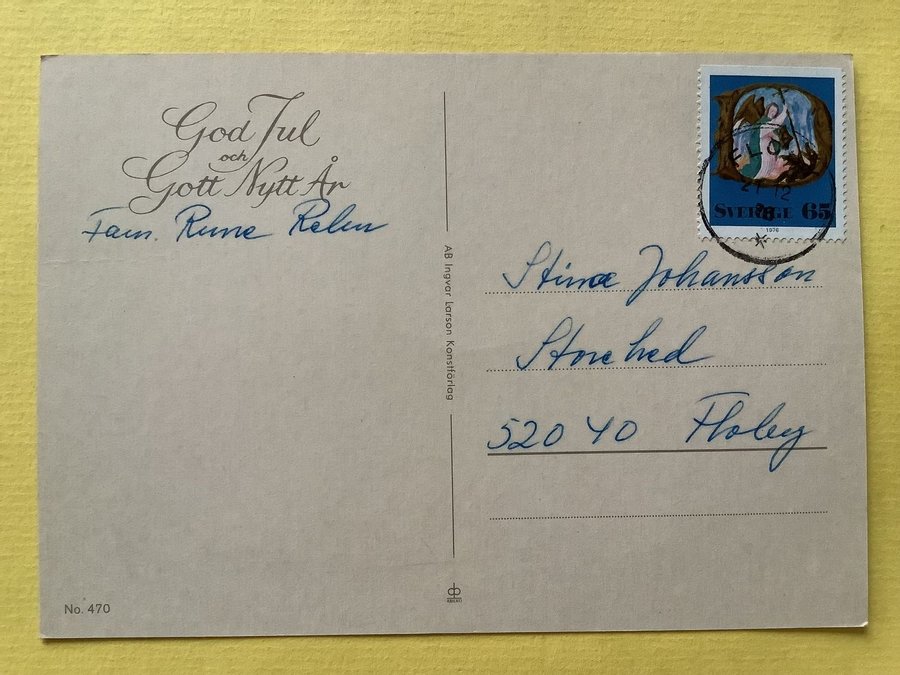 God Jul
och
Gott Nytt År
Fam. Rune
No. 470
AB Ingvar Larson Konstförlag
SVERIGE 65
1976
21 12
76
Stina Johansson
Storehed
520 40 Floby